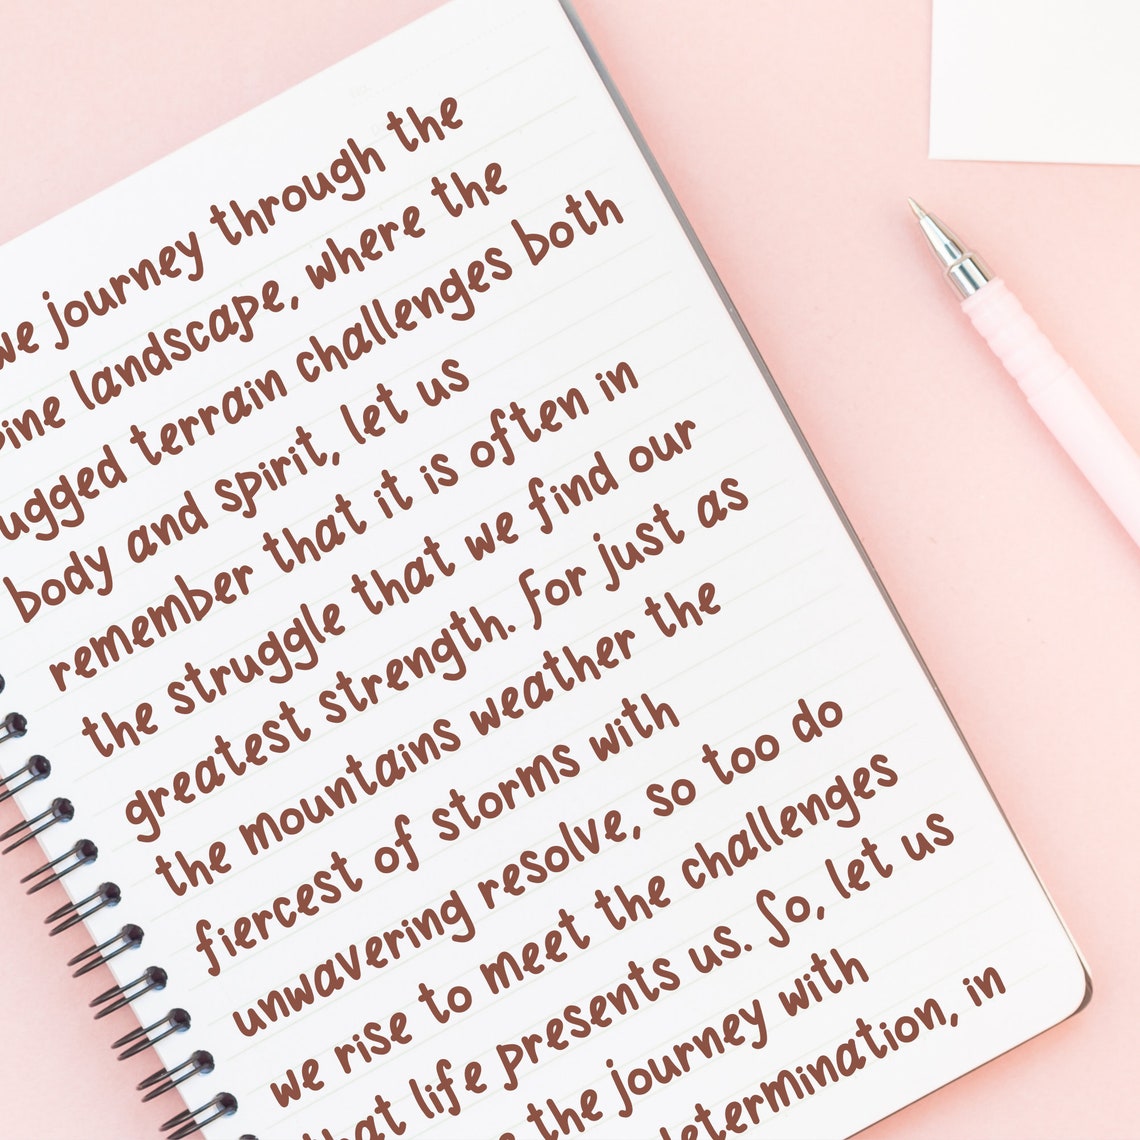 we journey through the
landscape, where the
terrain challenges both
body and spirit, let us
remember that it is often in
the struggle that we find our
greatest strength. For just as
the mountains weather the
fiercest of storms with
unwavering resolve, so too do
we rise to meet the challenges
that life presents us. So, let us
the journey with
determination, in